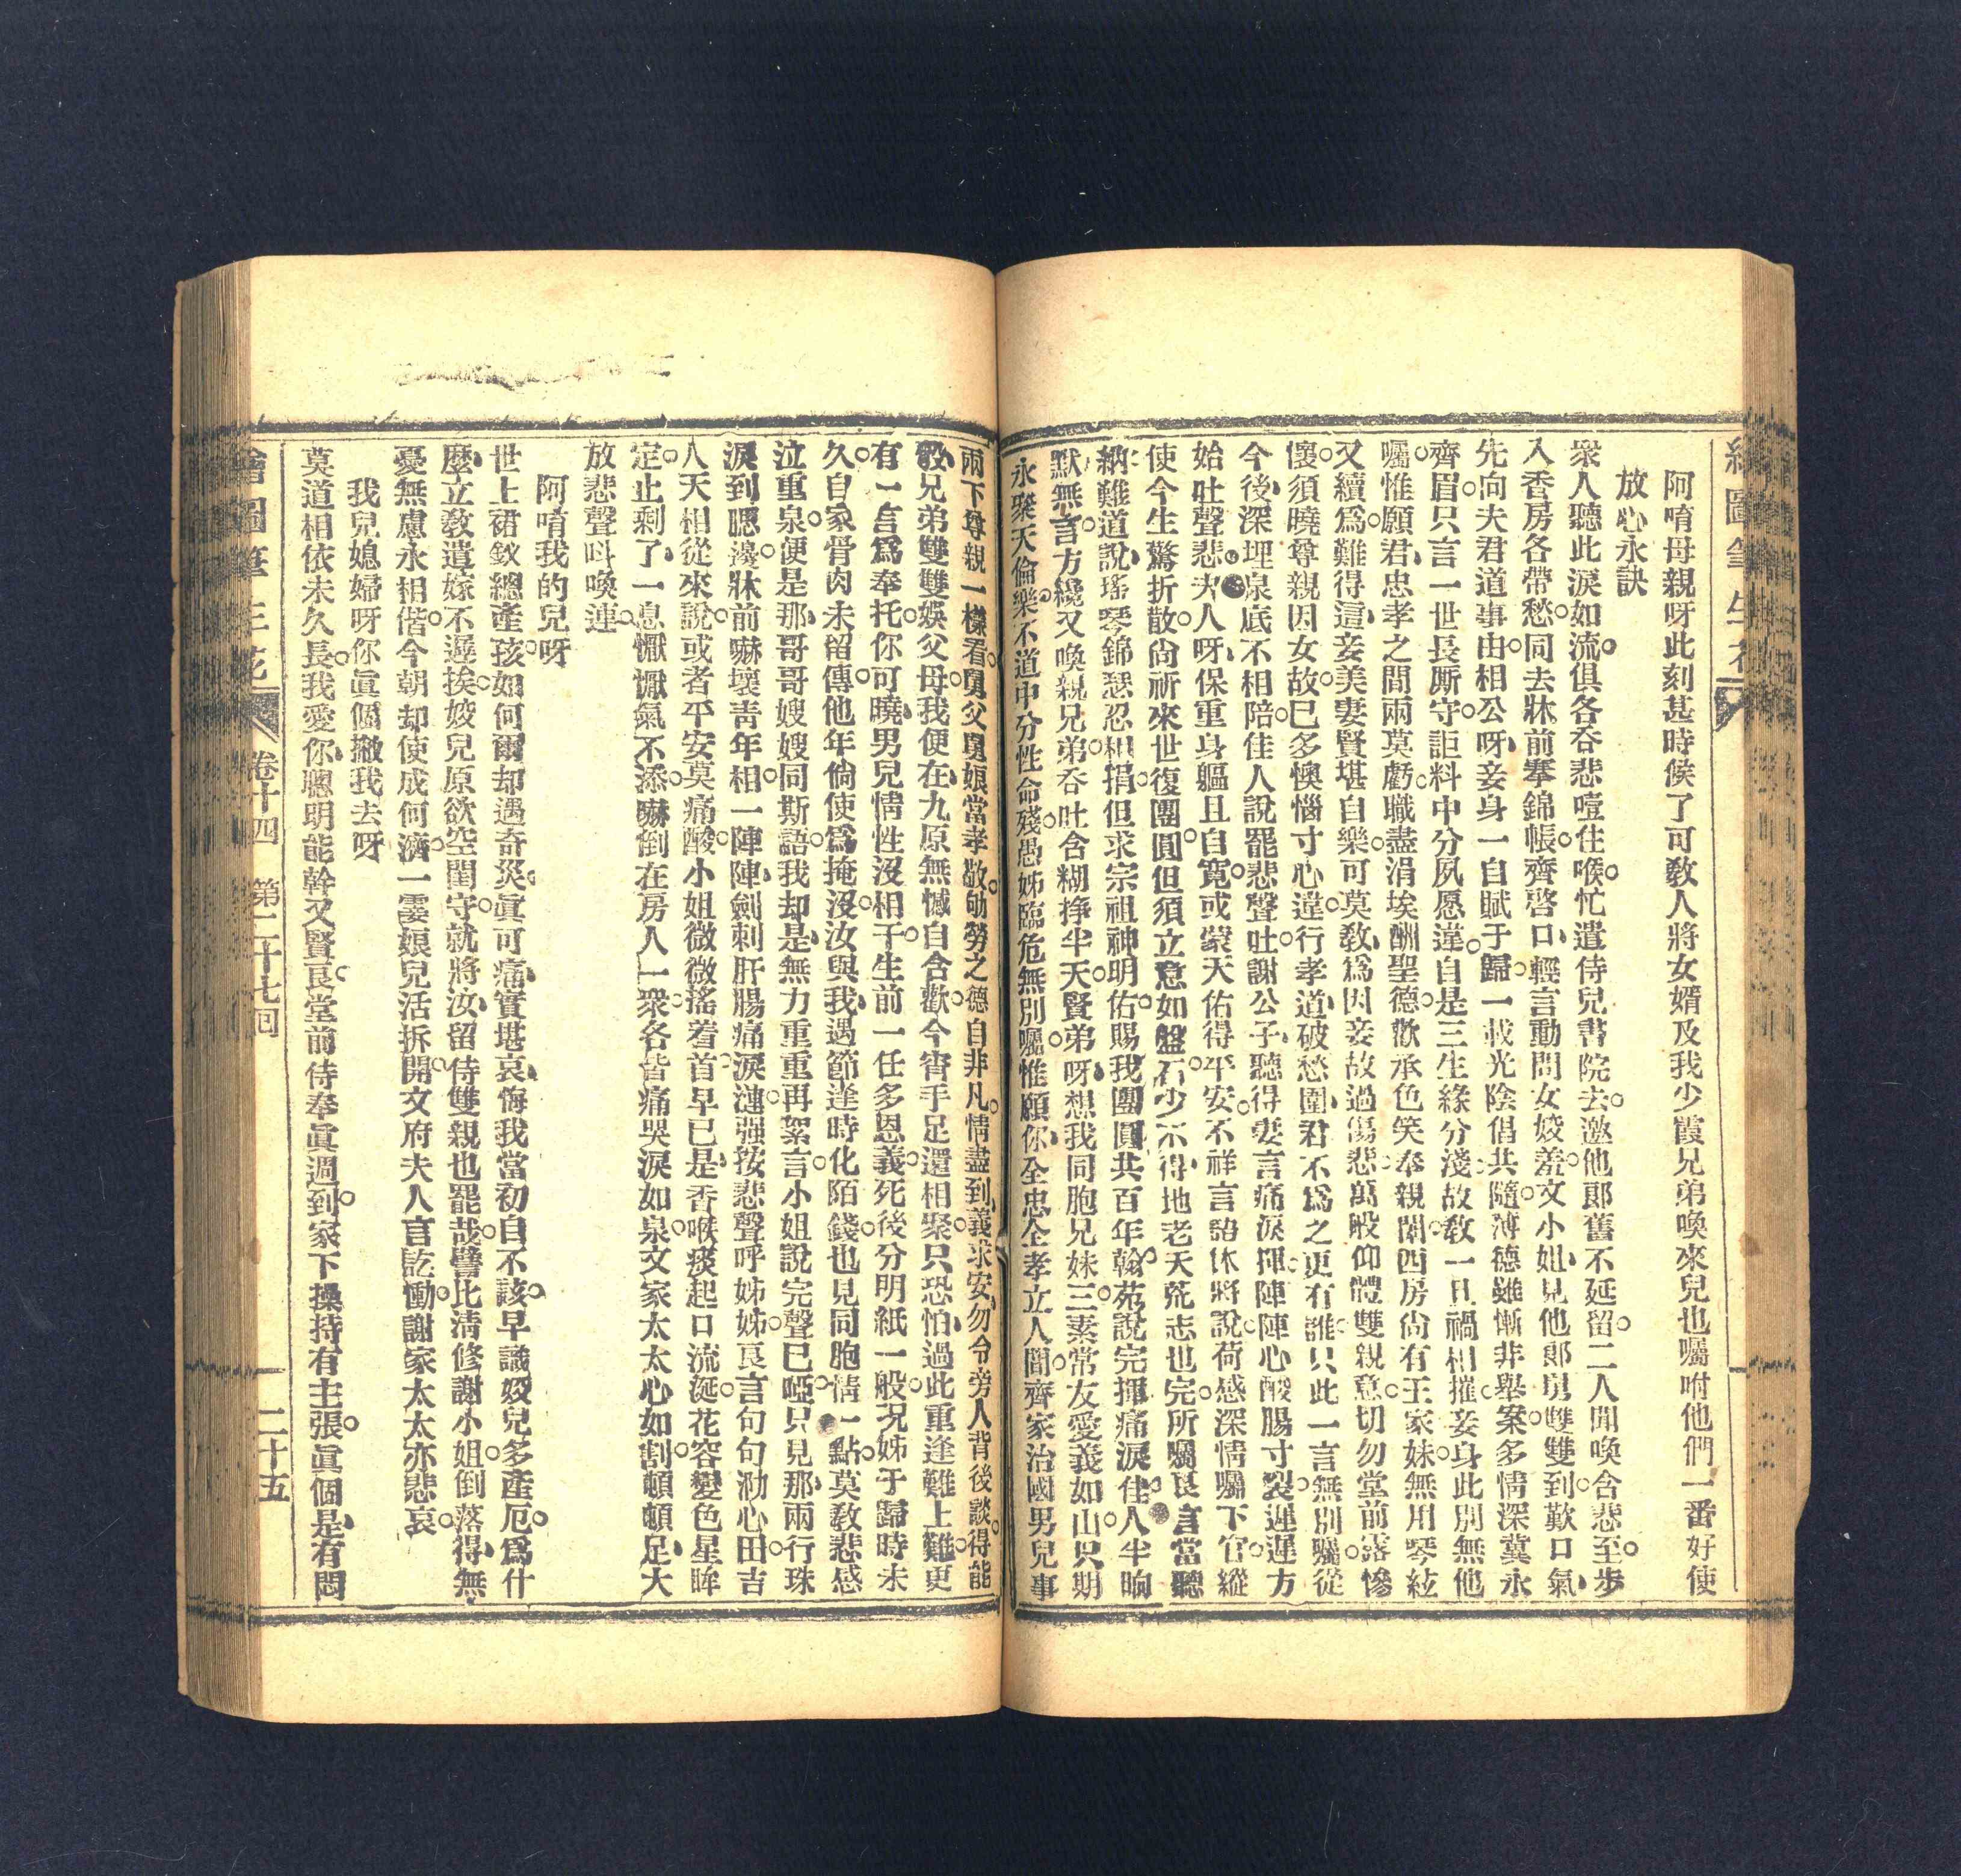 繪圖筆生花
阿唷母親呀此刻甚時候了可敎人將女婿及我少霞兄弟喚來兒也囑咐他們一番好使
放心永訣
衆人聽此淚如流。俱各呑悲噎住喉。忙遣侍兒書院去。邀他郎舊不延留。二人聞喚含悲至。步
入香房各帶愁。同去牀前搴錦帳。齊啓口、輕言動問女姣羞。文小姐、見他郎舅雙雙到。歎口氣、
先向夫君道事由。相公呀、妾身一自賦于歸。一載光陰倡共隨。薄德雖慚非舉案。多情深冀永
齊眉。只言一世長厮守。詎料中分夙愿違。自是三生緣分淺。故敎一旦禍相摧。妾身此別無他
囑。惟願君、忠孝之間兩莫虧。職盡涓埃酬聖德。歡承色笑奉親闈。西房尙有王家妹。無用琴絃
又續爲。難得這、妾美妻賢堪自樂。可莫敎、爲因妾故過傷悲。萬般仰體雙親意。切勿堂前露慘
懷。須曉尊親因女故。已多懊惱寸心違。行孝道、破愁圍。君不爲之更有誰。只此一言無別囑。從
今後、深埋泉底不相陪。佳人說罷悲聲吐。謝公子、聽得妻言痛淚揮。陣陣心酸腸寸裂。遲遲方
始吐聲悲。夫人呀、保重身軀且自寬。或蒙天佑得平安。不祥言語休將說。荷感深情囑下官。縱
使今生驚折散。尙祈來世復團圓。但須立意如盤石。少不得、地老天荒志也完。所囑良言當聽
納。難道說、瑤琴錦瑟忍相捐。但求宗祖神明佑。賜我團圓共百年。翰苑說完揮痛淚。佳人半晌
默無言。方纔又喚親兄弟。呑吐含糊掙半天。賢弟呀、想我同胞兄妹三。素常友愛義如山。只期
永聚天倫樂。不道中分性命殘。愚姊臨危無別囑。惟願你、全忠全孝立人間。齊家治國男兒事
兩下尊親一樣看。舅父舅娘當孝敬。劬勞之德自非凡。情盡到、義求安。勿令旁人背後談。得能
彀、兄弟雙雙娛父母。我便在、九原無憾自含歡。今宵手足還相聚。只恐怕、過此重逢難上難。更
有一言爲奉托。你可曉、男兒情性沒相干。生前一任多恩義。死後分明紙一般。况姊于歸時未
久。自家骨肉未留傳。他年倘使爲掩沒。汝與我、遇節逢時化陌錢。也見同胞情一點。莫敎悲感
泣重泉。便是那、哥哥嫂嫂同斯語。我却是、無力重重再絮言。小姐說完聲已啞。只見那、兩行珠
淚到腮邊。牀前嚇壞靑年相。一陣陣、劍刺肝腸痛淚漣。强按悲聲呼姊姊。良言句句泐心田。吉
人天相從來說。或者平安莫痛酸。小姐微微搖着首。早已是、香喉痰起口流涎。花容變色星眸
定。止剩了、一息懨懨氣不添。嚇倒在房人一衆。各皆痛哭淚如泉。文家太太心如割。頓頓足、大
放悲聲叫喚連。
阿唷我的兒呀
世上裙釵總產孩。如何爾却遇奇災。眞可痛、實堪哀。悔我當初自不該。早識姣兒多產厄。爲什
麼、立敎遣嫁不遲挨。姣兒原欲空閨守。就將汝、留侍雙親也罷哉。譬比淸修謝小姐。倒落得、無
憂無慮永相偕。今朝却使成何濟。一霎娘兒活拆開。文府夫人言訖慟。謝家太太亦悲哀。
我兒媳婦呀你眞個撇我去呀
莫道相依未久長。我愛你、聰明能幹又賢良。堂前侍奉眞週到。家下操持有主張。眞個是、有悶
繪圖筆生花 卷十四 第二十七囘 二十五